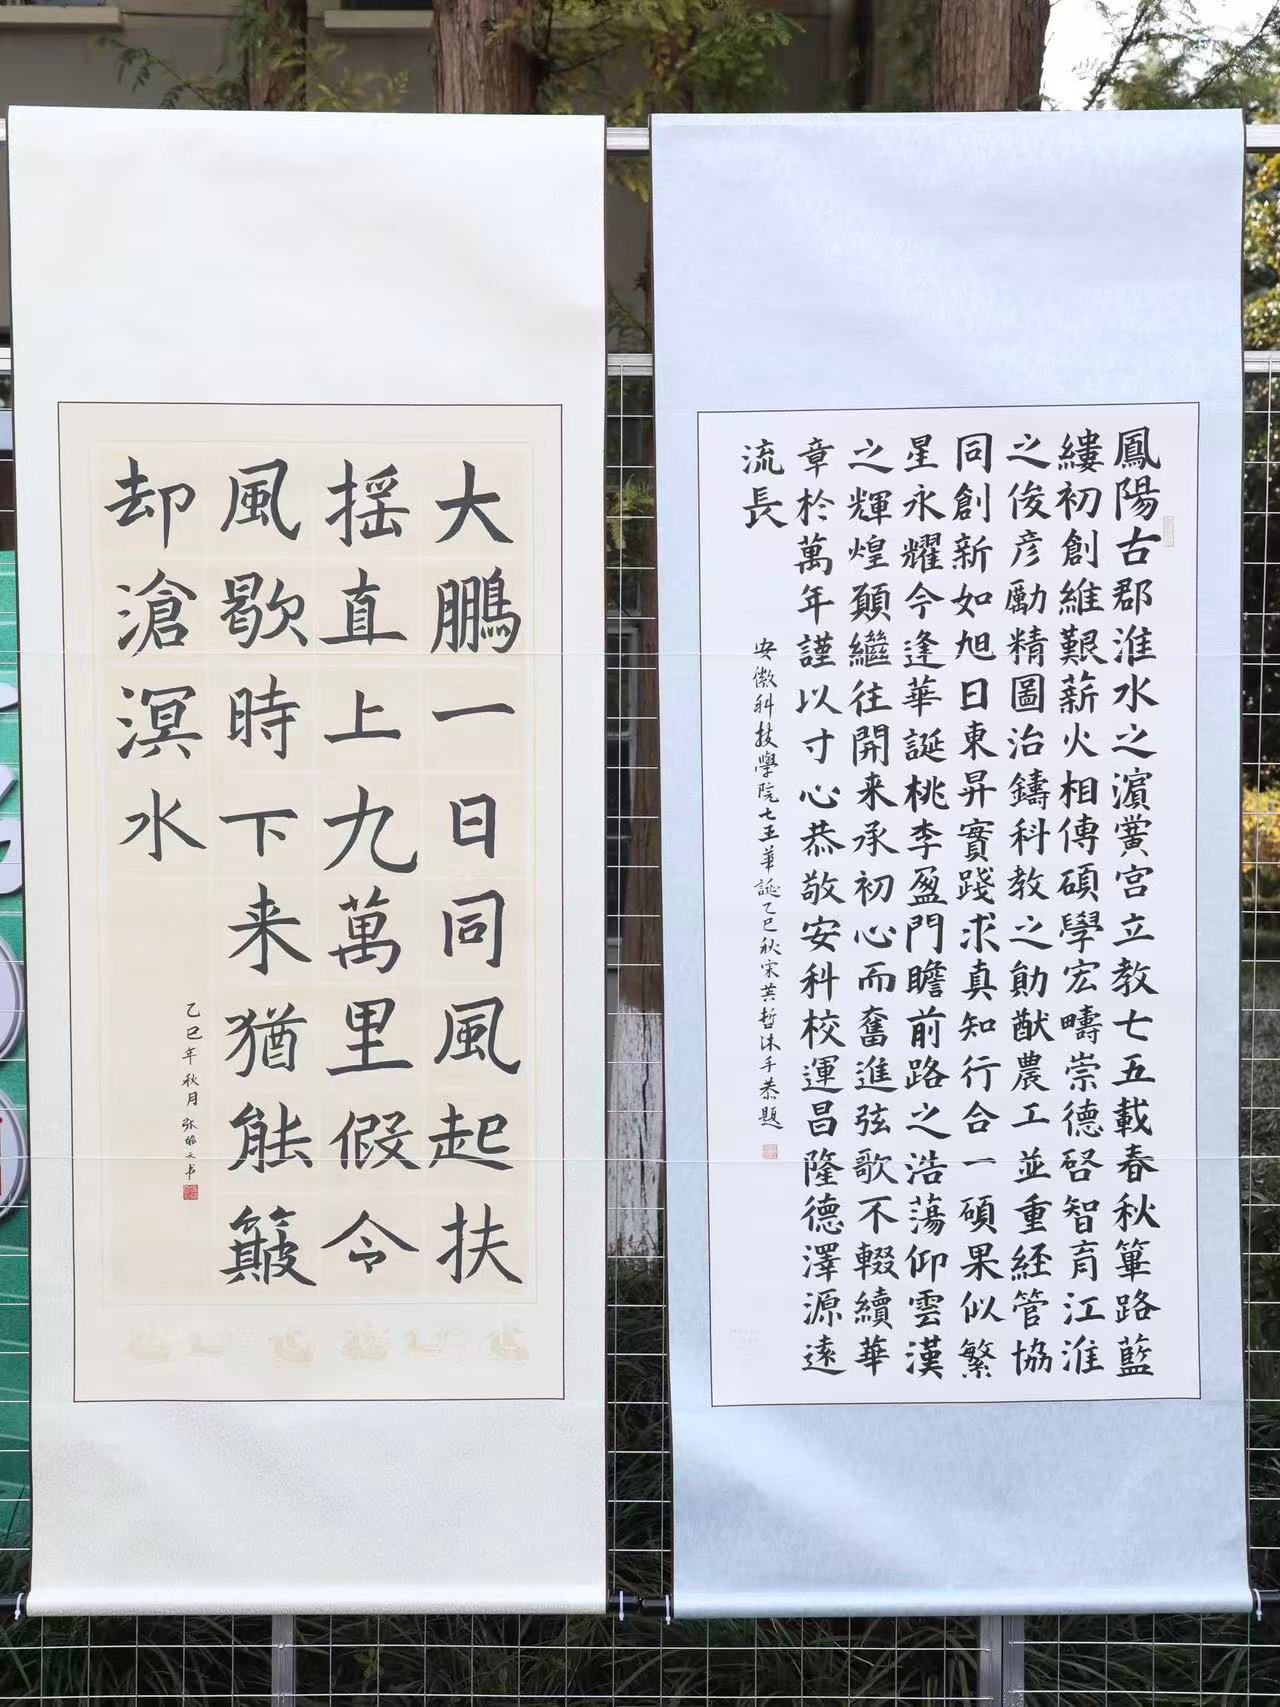 鳳陽古郡淮水之濵黌宮立教七五載春秋篳路藍
縷初創維艱薪火相傳碩學宏疇崇德啓智育江淮
之俊彦勵精圖治鑄科教之勛猷農工並重經管協
同創新如旭日東昇實踐求真知行合一碩果似繁
星永耀今逢華誕桃李盈門瞻前路之浩蕩仰雲漢
之輝煌願繼往開来承初心而奮進弦歌不輟續華
章於萬年謹以寸心恭敬安科校運昌隆德澤源遠
流長
安徽科技學院七五華誕乙巳秋宋其哲沐手恭題
大鵬一日同風起扶
摇直上九萬里假令
風歇時下来猶能簸
却滄溟水
乙巳年秋月 张书